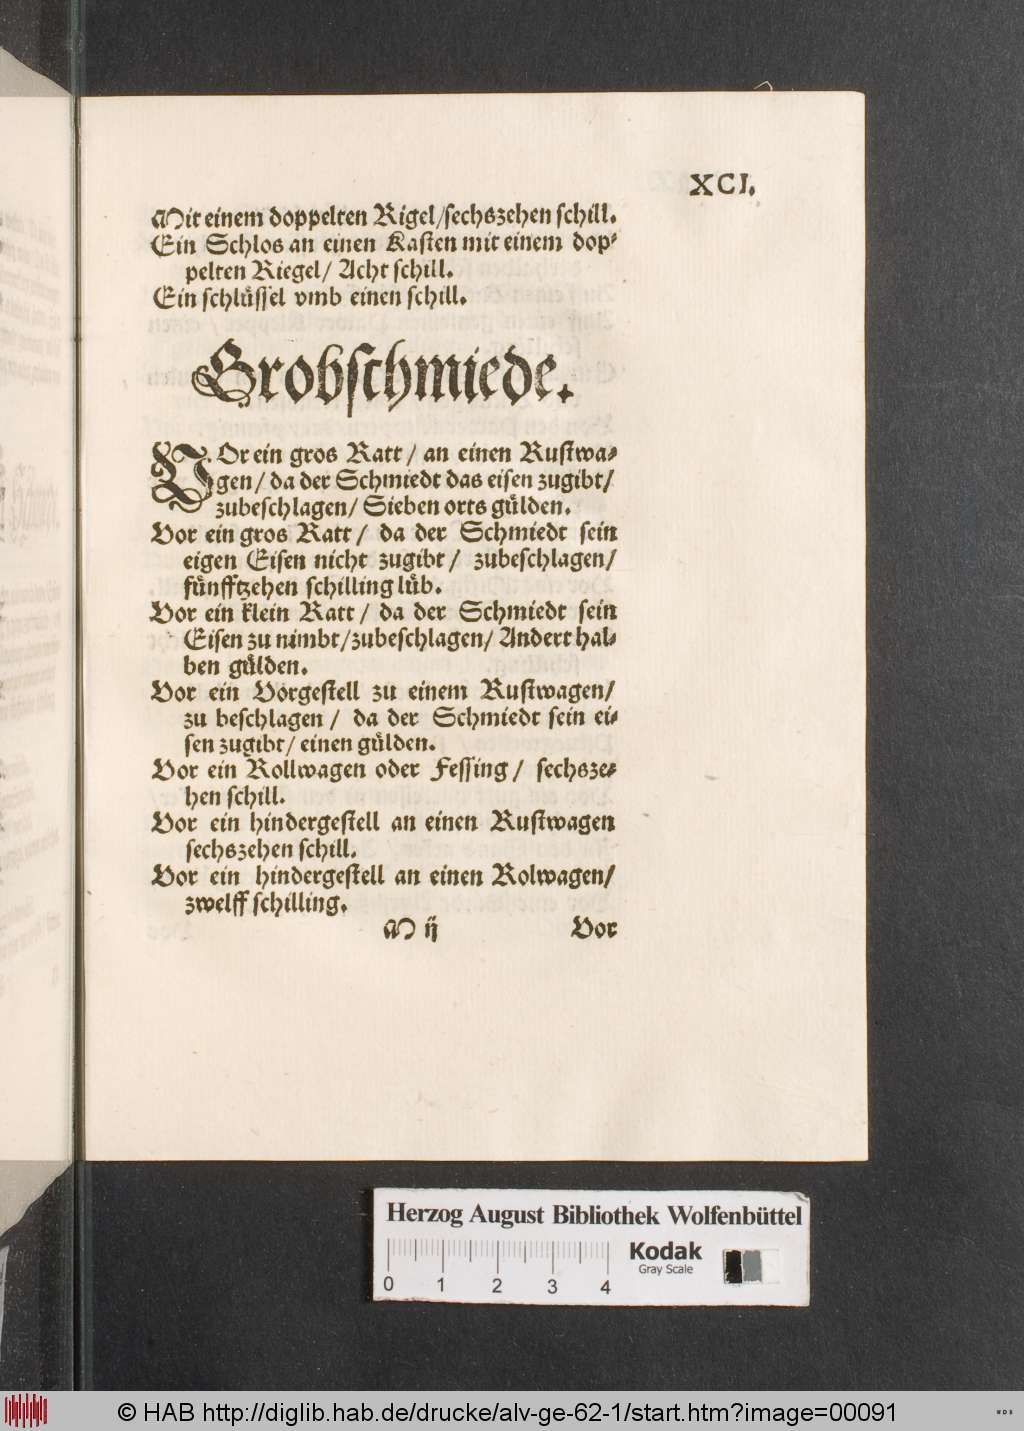 XCI.
Mit einem doppelten Rigel/sechszehen schill.
Ein Schlos an einen Kasten mit einem dop-
pelten Riegel/ Acht schill.
Ein schlüssel vmb einen schill.
Grobschmiede.
VOr ein gros Ratt / an einen Rustwa-
gen / da der Schmiedt das eisen zugibt/
zubeschlagen/ Sieben orts gülden.
Vor ein gros Ratt / da der Schmiedt sein
eigen Eisen nicht zugibt / zubeschlagen/
fünfftzehen schilling lüb.
Vor ein klein Ratt / da der Schmiedt sein
Eisen zu nimbt/zubeschlagen/ Andert hal-
ben gülden.
Vor ein Vorgestell zu einem Rustwagen/
zu beschlagen / da der Schmiedt sein ei-
sen zugibt/ einen gülden.
Vor ein Rollwagen oder Fessing / sechsze-
hen schill.
Vor ein hindergestell an einen Rustwagen
sechszehen schill.
Vor ein hindergestell an einen Rolwagen/
zwelff schilling.
M ij Vor
Herzog August Bibliothek Wolfenbüttel
Kodak
Gray Scale
0 1 2 3 4
© HAB http://diglib.hab.de/drucke/alv-ge-62-1/start.htm?image=00091